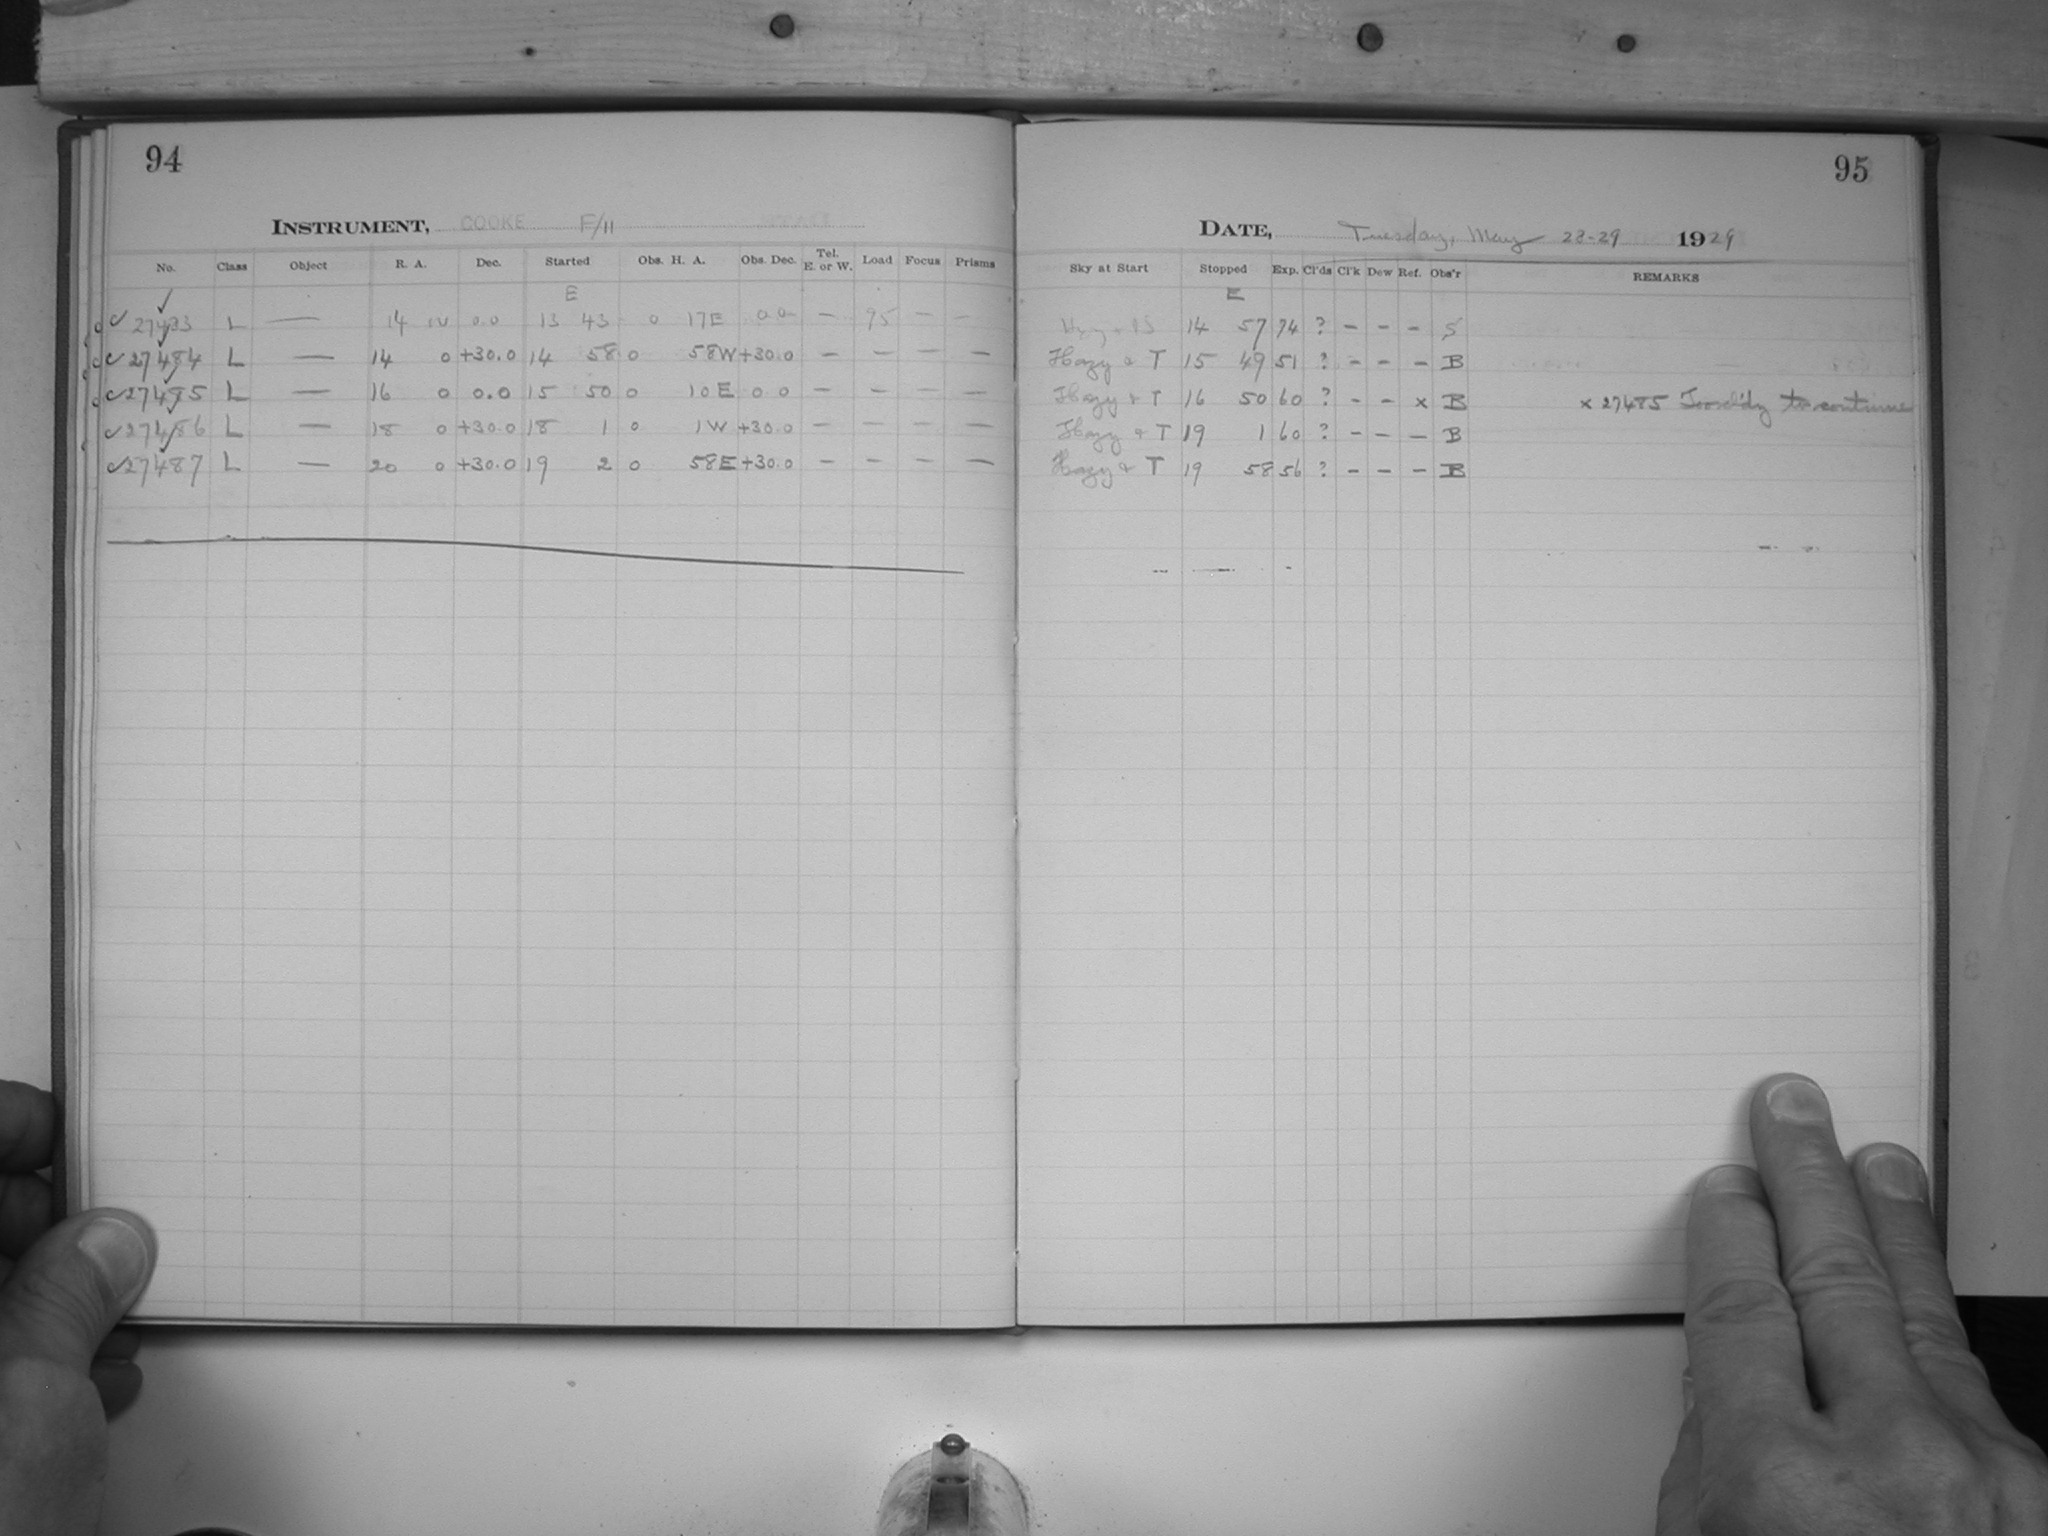 94
INSTRUMENT, COOKE F/11
No. Class Object R. A. Dec. Started Obs. H. A. Obs. Dec. Tel. E. or W. Load Focus Prisms
E
✓ 27483 L — 14 0.0 13 43 0 17E 0.0 — 95 — —
✓ 27484 L — 14 0 +30.0 14 58 0 58W +30.0 — — — —
✓ 27485 L — 16 0 0.0 15 50 0 10E 0.0 — — — —
✓ 27486 L — 18 0 +30.0 18 1 0 1W +30.0 — — — —
✓ 27487 L — 20 0 +30.0 19 2 0 58E +30.0 — — — —
95
DATE, Tuesday, May 28-29 1929
Sky at Start Stopped Exp. Cl'ds Cl'k Dew Ref. Obs'r REMARKS
E
14 57 74 ? - - - S
Hazy & T 15 49 51 ? - - - B
Hazy & T 16 50 60 ? - - x B x 27485 to continue
Hazy & T 19 1 60 ? - - - B
Hazy & T 19 58 56 ? - - - B